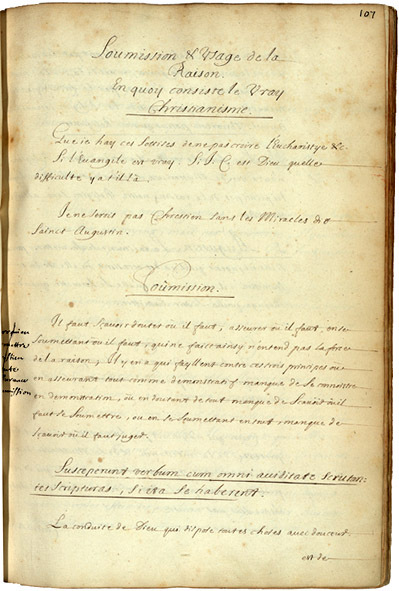 107
Soumission & Vsage de la
Raison.
En quoy consiste le Vray
Christianisme.
Que ie hay ces sottises de ne pas croire l'Eucharistye &c
Si l'Euangile est vray. Si J. C. est Dieu quelle
difficulté y a t'il là
Je ne serois pas Chrestien sans les Miracles dit
Sainct Augustin.
Soûmission.
Il faut sçauoir douter où il faut, asseurer où il faut, en se
soumettant où il faut, qui ne fait ainsy n'entend pas la force
de la raison, Il y en a qui faillent contre ces trois principes ou
en asseurant tout comme demonstratif manque de se connoitre
en demonstration, ou en doutant de tout manque de sçauoir où il
faut se soumettre, ou en se soumettant en tout, manque de
sçauoir où il faut juger.
Susceperunt verbum cum omni auiditate scrutan-
tes scripturas, si ita se haberent.
La conduite de Dieu qui dispose toutes choses auec douceur
est de